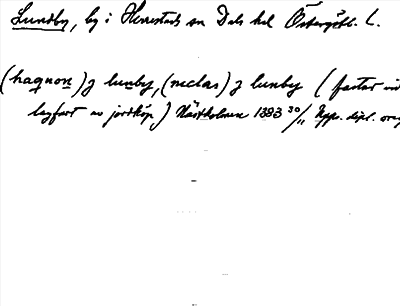 Lundby, by i Herrestads sn Dals hd Östergötl. L.
(haquon) j lunby, (niclas) j lunby ( fastar vid
lagfart av jordköp) Hästholmen 1383 30/11 Upps. dipl. orig